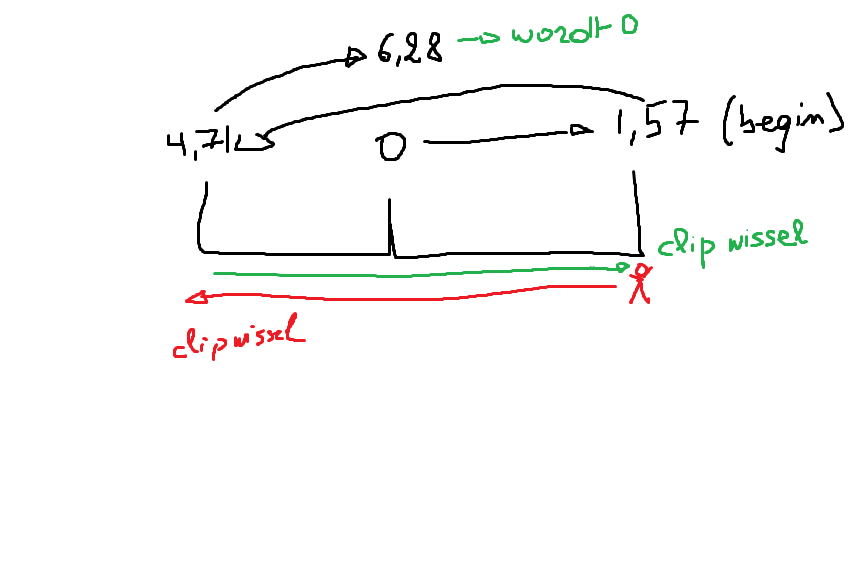 6,28 → wordt 0
4,71 0 → 1,57 (begin)
clip wissel
clip wissel